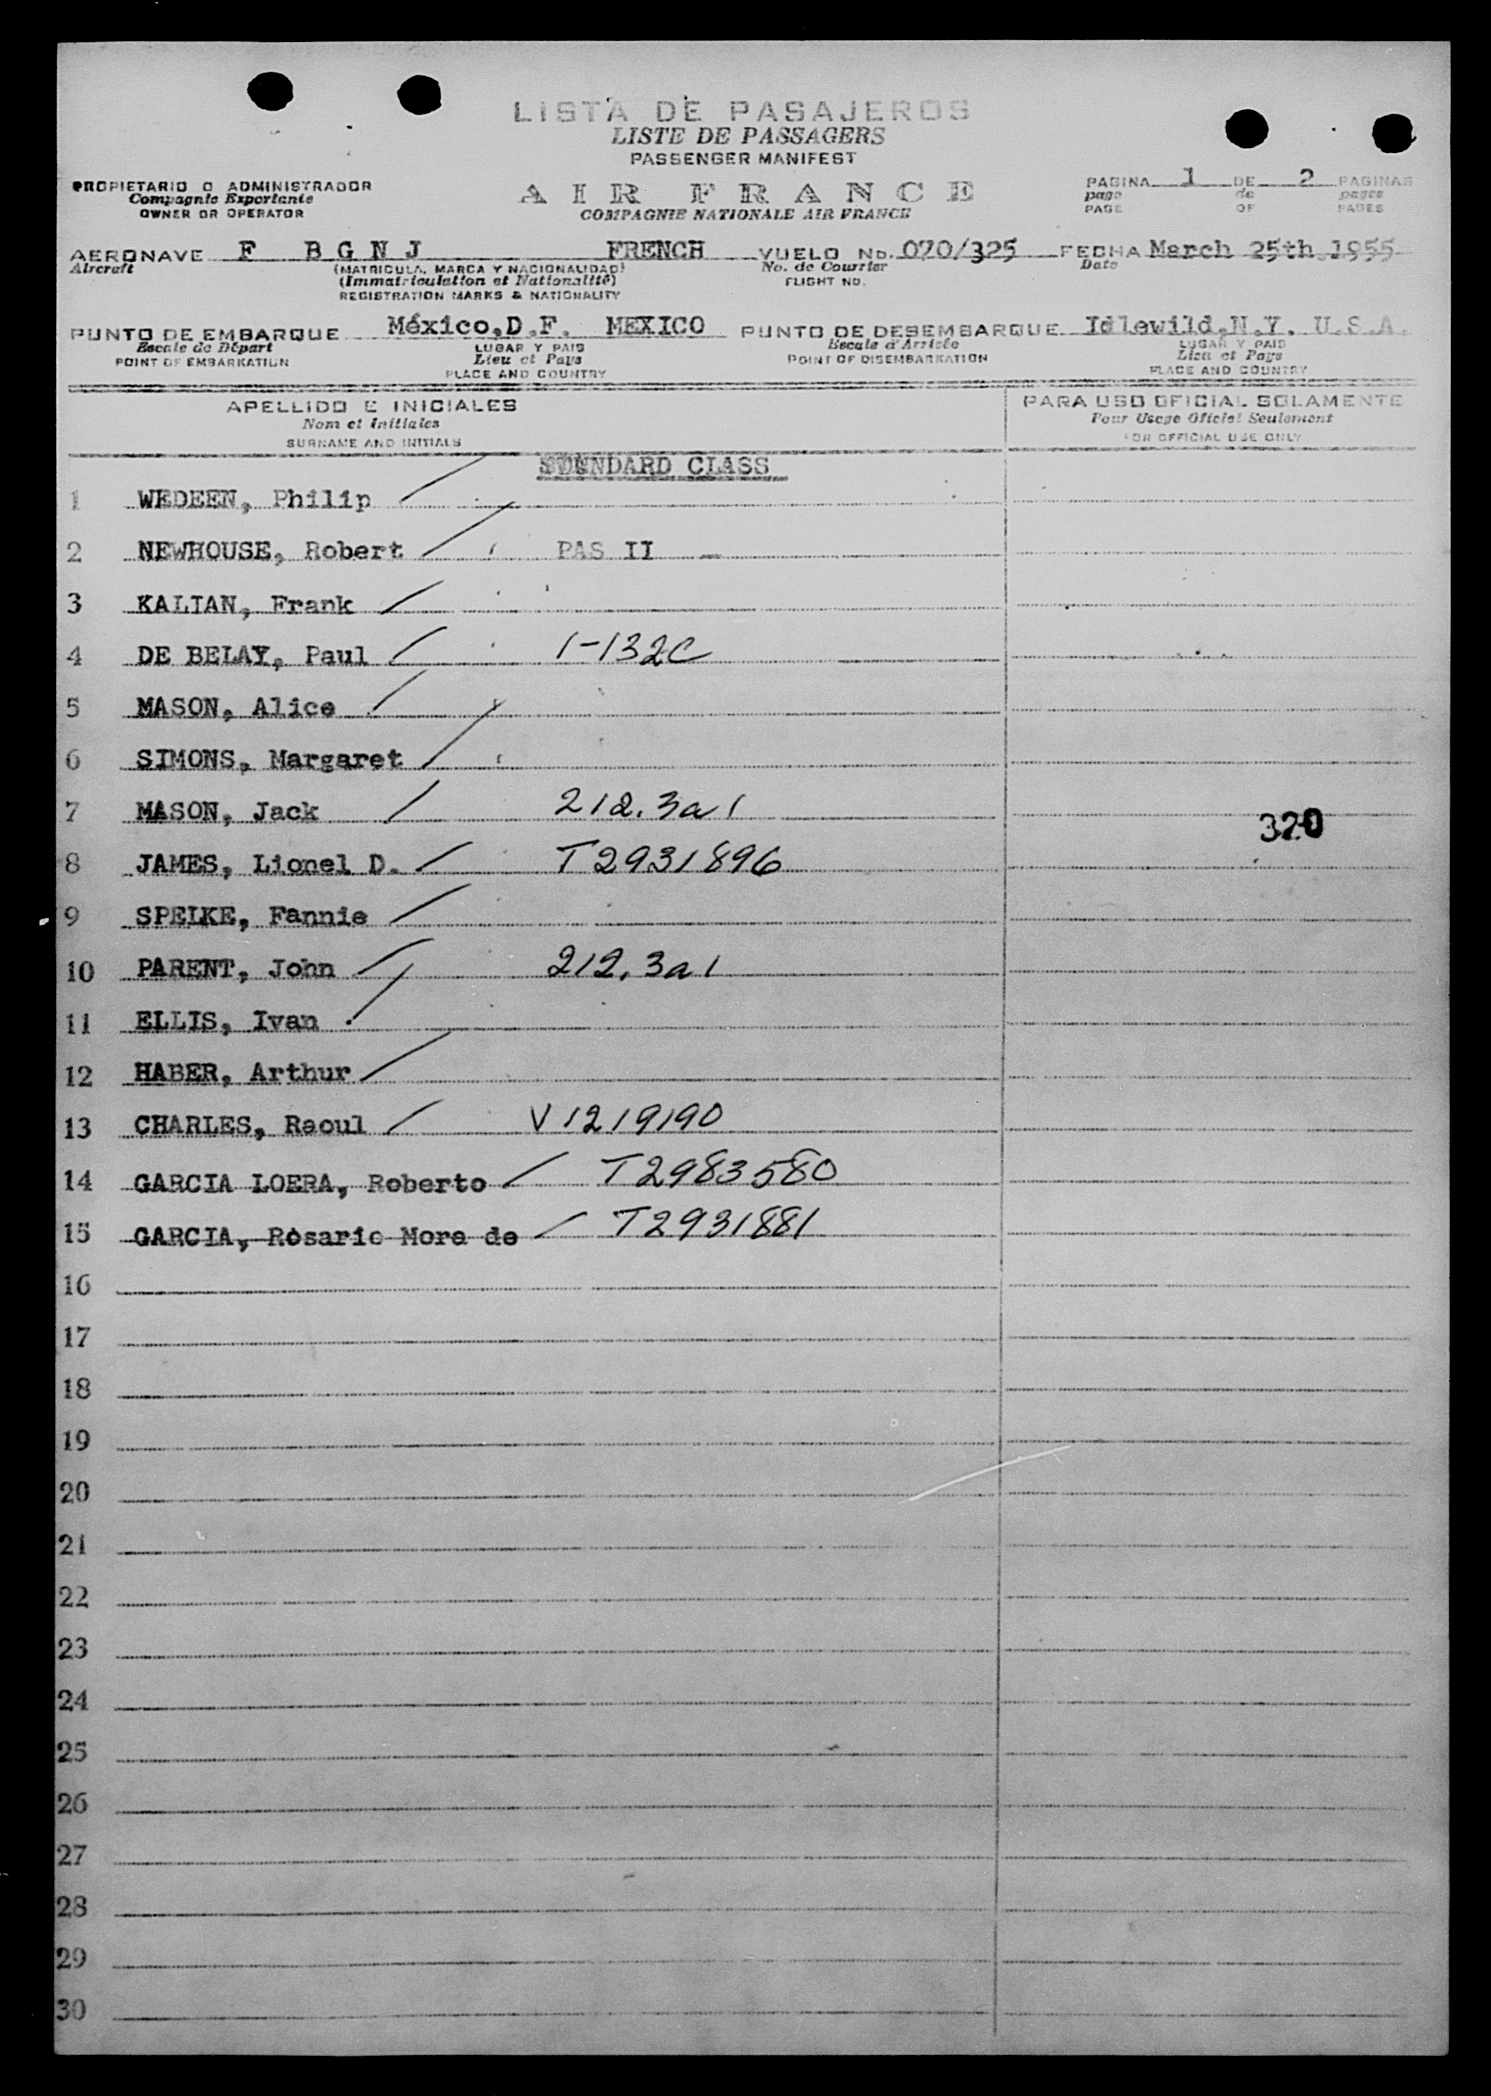 LISTA DE PASAJEROS
LISTE DE PASSAGERS
PASSENGER MANIFEST
PROPIETARIO O ADMINISTRADOR
Compagnie Exportante
OWNER OR OPERATOR
AIR FRANCE
COMPAGNIE NATIONALE AIR FRANCE
PAGINA 1 DE 2 PAGINAS
page de pages
PAGE OF PAGES
AERONAVE F B G N J FRENCH VUELO No. 070/325 FECHA March 25th.1955
Aircraft (MATRICULA, MARCA Y NACIONALIDAD) No. de Courrier Date
(Immatriculation et Nationalité) FLIGHT NO.
REGISTRATION MARKS & NATIONALITY
PUNTO DE EMBARQUE México,D.F. MEXICO PUNTO DE DESEMBARQUE Idlewild,N.Y. U.S.A.
Escale de Départ LUGAR Y PAIS Escale d'Arrivée LUGAR Y PAIS
POINT OF EMBARKATION Lieu et Pays POINT OF DISEMBARKATION Lieu et Pays
PLACE AND COUNTRY PLACE AND COUNTRY
APELLIDO E INICIALES PARA USO OFICIAL SOLAMENTE
Nom et Initiales Pour Usage Officiel Seulement
SURNAME AND INITIALS FOR OFFICIAL USE ONLY
CLASS
1 WEDEEN, Philip
2 NEWHOUSE, Robert PAS II
3 KALIAN, Frank
4 DE BELAY, Paul 1-132C
5 MASON, Alice
6 SIMONS, Margaret
7 MASON, Jack 212.3a1
320
8 JAMES, Lionel D. T2931896
9 SPEIKE, Fannie
10 PARENT, John 212.3a1
11 ELLIS, Ivan
12 HABER, Arthur
13 CHARLES, Raoul V1219190
14 GARCIA LOERA, Roberto T2983580
15 GARCIA, Rosario Mora de T2931881
16
17
18
19
20
21
22
23
24
25
26
27
28
29
30